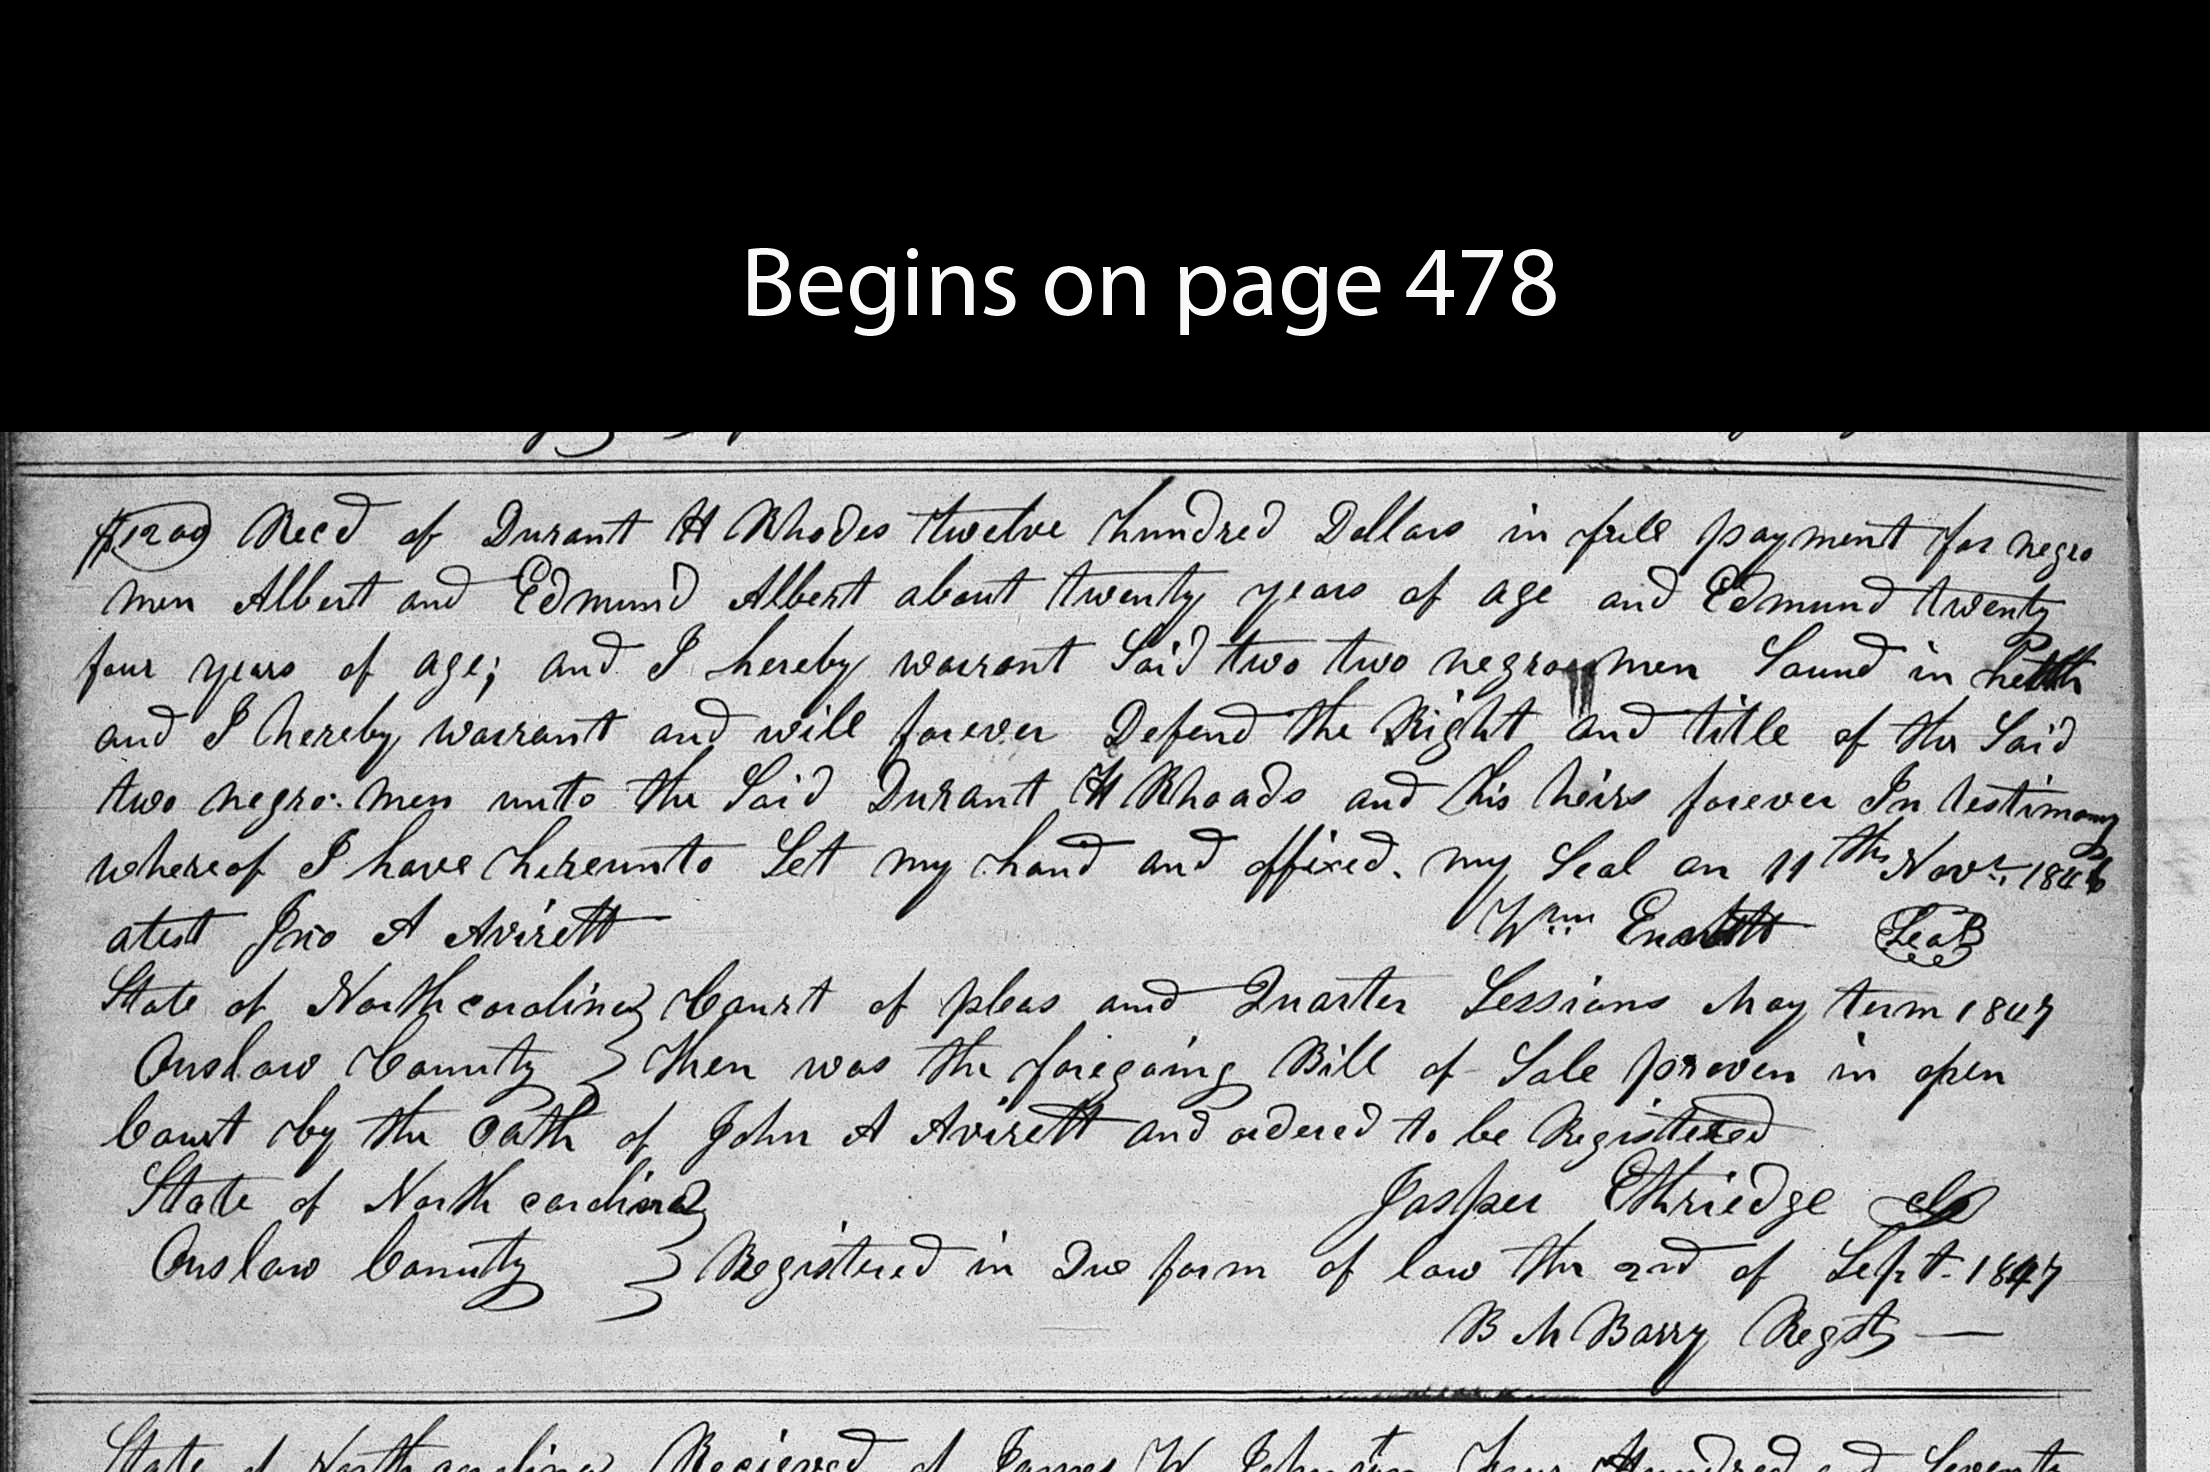 Begins on page 478
$1200 Recd of Durant H Rhodes twelve hundred Dollars in full payment for negro
men Albert and Edmund Albert about twenty years of age and Edmund twenty
four years of age; and I hereby warrant Said two two negro men Sound in helth
and I hereby warrant and will forever Defend the Right and title of the Said
two negro men unto the Said Durant H Rhoads and his heirs forever In testimony
whereof I have hereunto Set my hand and affixed my Seal on 11th Novr. 1846
atest Jno A Avirett Wm Seal
State of North carolina Court of pleas and Quarter Sessions May term 1847
Onslow County Then was the foregoing Bill of Sale proven in open
Court by the Oath of John A Avirett and ordered to be Registered
State of North carolina Jasper Ethriedge Clk
Onslow County Registered in Due form of law the 2nd of Sept. 1847
B M Barry Regst
State of North carolina Recieved of James W Johnston Four Hundred and Seventy